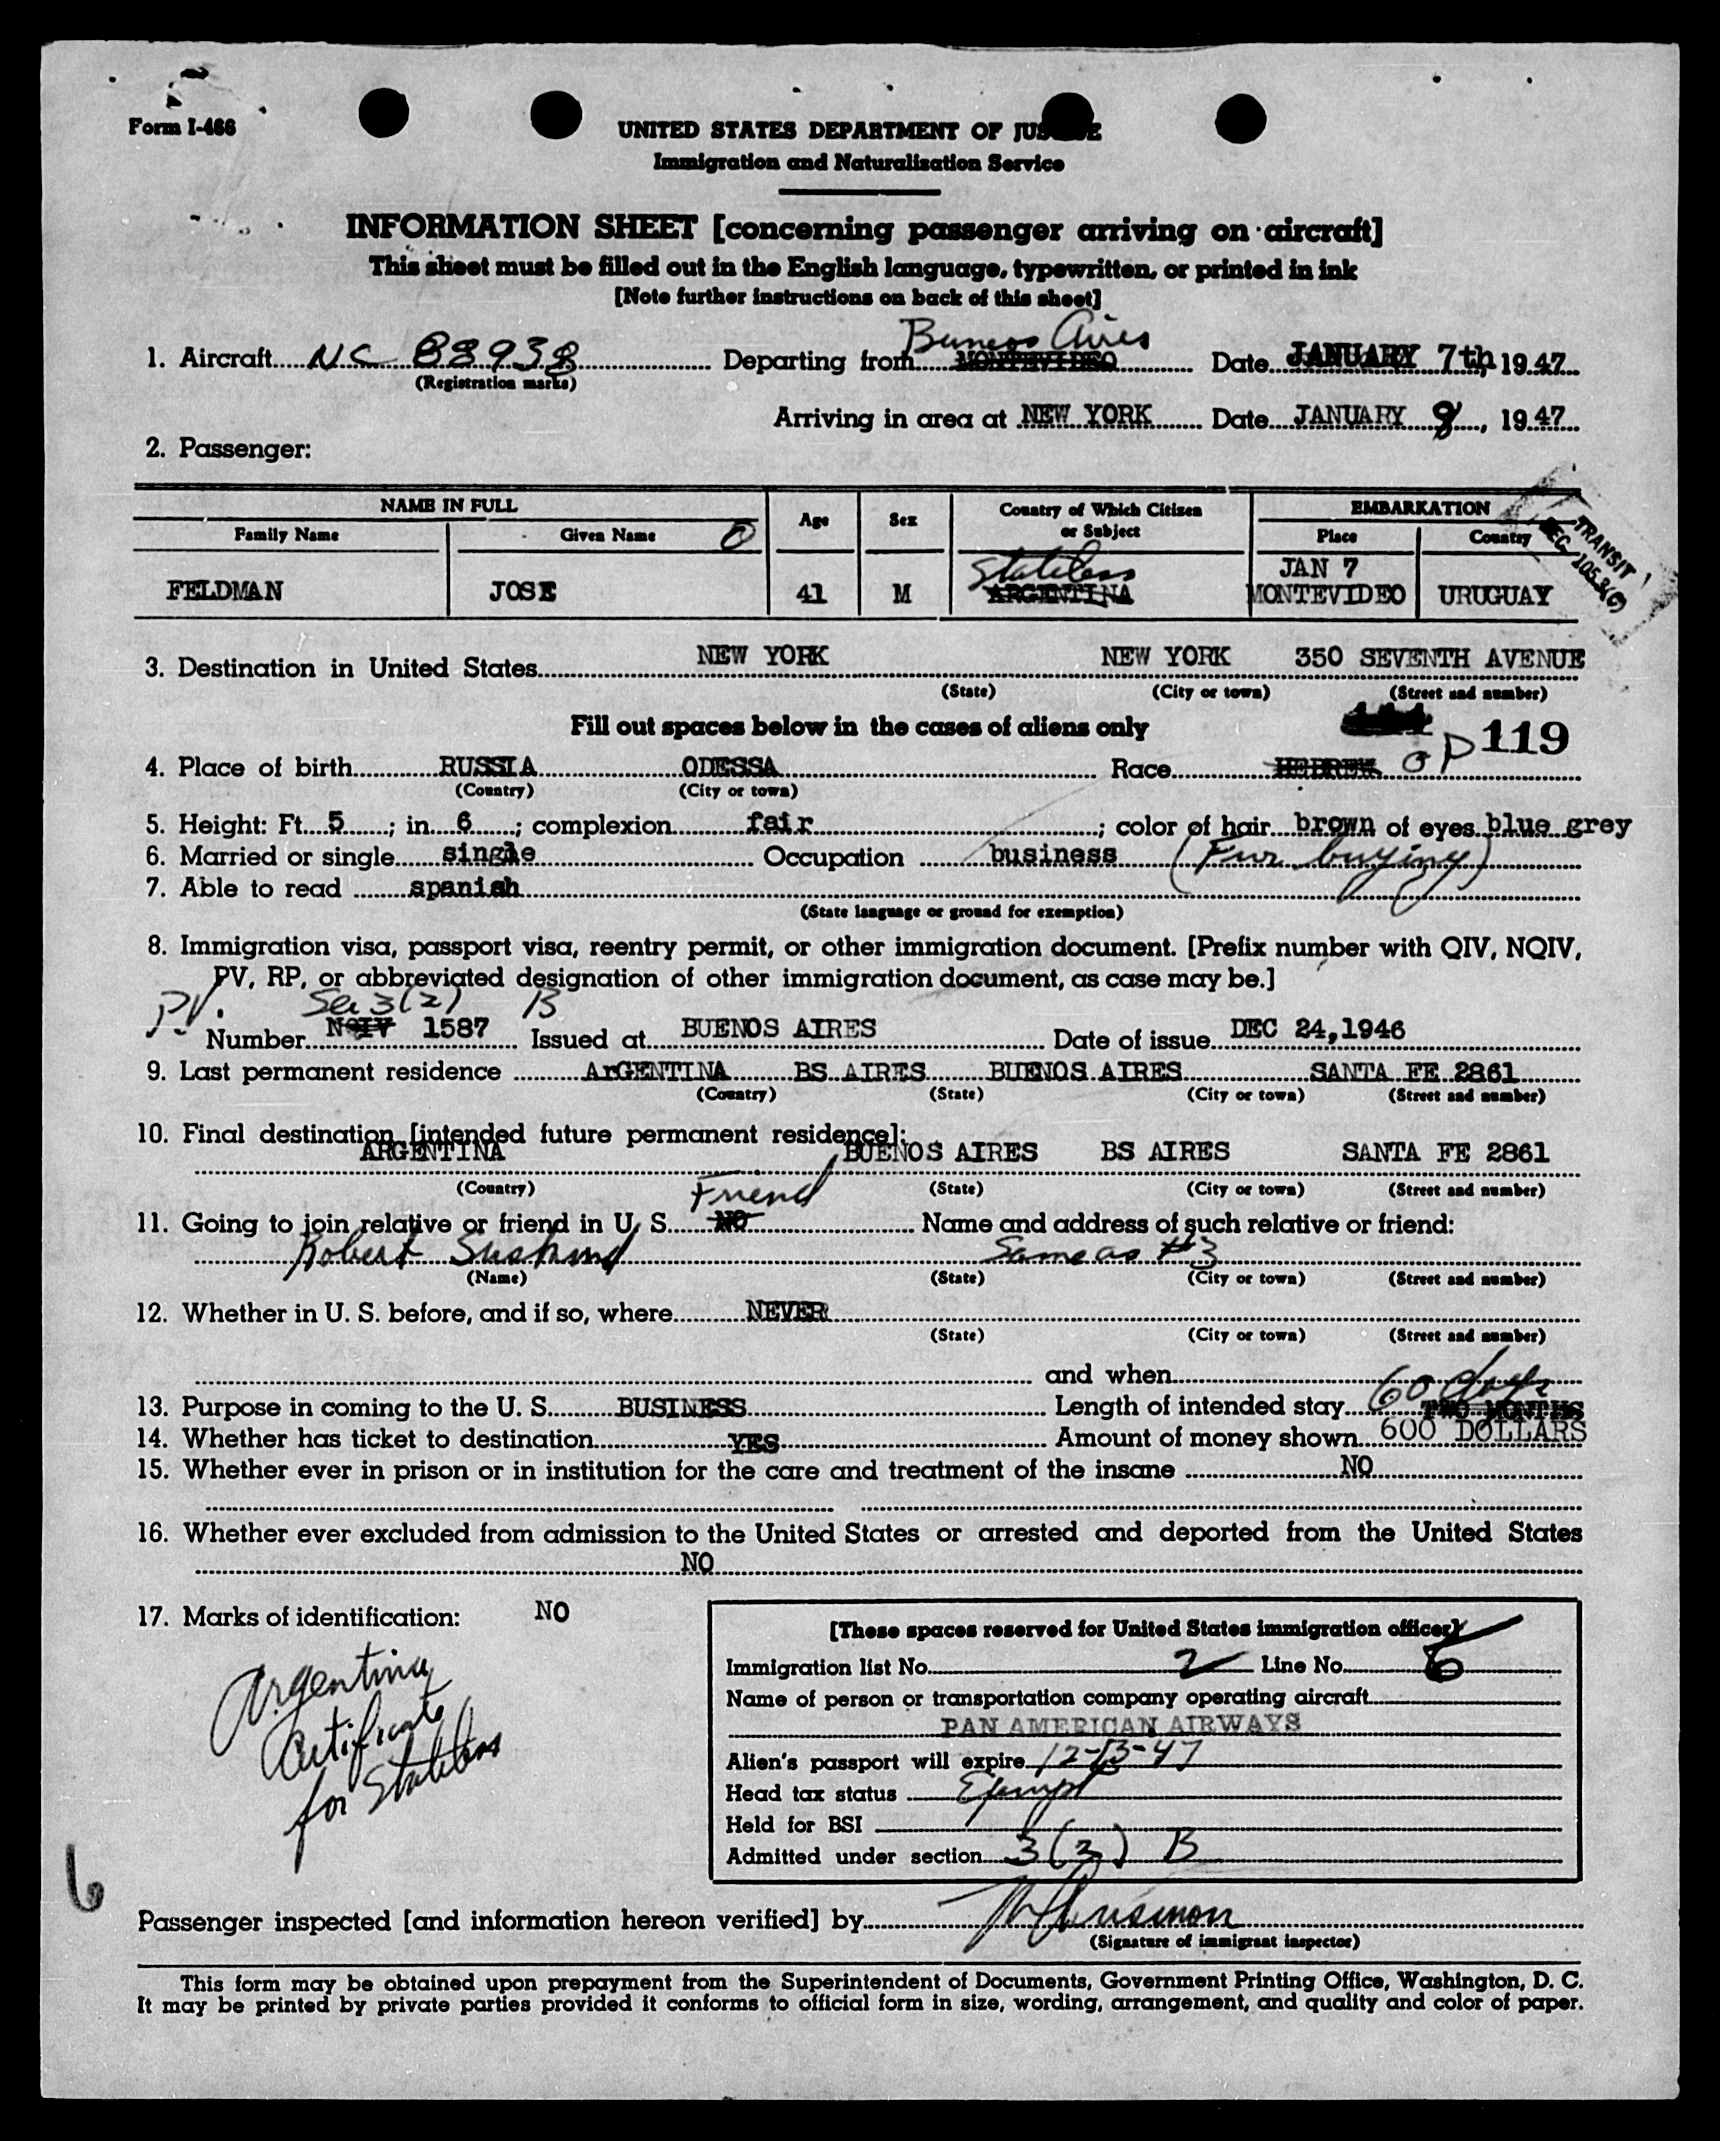 Form I-466
UNITED STATES DEPARTMENT OF JUSTICE
Immigration and Naturalization Service
INFORMATION SHEET [concerning passenger arriving on aircraft]
This sheet must be filled out in the English language, typewritten, or printed in ink
[Note further instructions on back of this sheet]
Buneos Aires
1. Aircraft NC 88938 Departing from MONTEVIDEO Date JANUARY 7th, 1947
(Registration marks)
Arriving in area at NEW YORK Date JANUARY 8, 1947
2. Passenger:
NAME IN FULL Age Sex Country of Which Citizen or Subject EMBARKATION
Family Name Given Name Place Country
TRANSIT
REG. 105.3(6)
Stateless JAN 7
FELDMAN JOSE 41 M ARGENTINA MONTEVIDEO URUGUAY
3. Destination in United States NEW YORK NEW YORK 350 SEVENTH AVENUE
(State) (City or town) (Street and number)
Fill out spaces below in the cases of aliens only
119
4. Place of birth RUSSIA ODESSA Race HEBREW OP
(Country) (City or town)
5. Height: Ft. 5; in. 6; complexion fair; color of hair brown of eyes blue grey
6. Married or single single Occupation business (Fur buying)
7. Able to read spanish
(State language or ground for exemption)
8. Immigration visa, passport visa, reentry permit, or other immigration document. [Prefix number with QIV, NQIV,
PV, RP, or abbreviated designation of other immigration document, as case may be.]
P.V. Sec 3(2) B
Number NQIV 1587 Issued at BUENOS AIRES Date of issue DEC 24,1946
9. Last permanent residence ArGENTINA BS AIRES BUENOS AIRES SANTA FE 2861
(Country) (State) (City or town) (Street and number)
10. Final destination [intended future permanent residence]:
ARGENTINA BUENOS AIRES BS AIRES SANTA FE 2861
(Country) (State) (City or town) (Street and number)
Friend
11. Going to join relative or friend in U. S. NO Name and address of such relative or friend:
Robert Suskind Same as #3
(Name) (State) (City or town) (Street and number)
12. Whether in U. S. before, and if so, where NEVER
(State) (City or town) (Street and number)
and when
60 days
13. Purpose in coming to the U. S. BUSINESS Length of intended stay TWO MONTHS
14. Whether has ticket to destination YES Amount of money shown 600 DOLLARS
15. Whether ever in prison or in institution for the care and treatment of the insane NO
16. Whether ever excluded from admission to the United States or arrested and deported from the United States
NO
17. Marks of identification: NO
Argentina
Certificate
for Stateless
[These spaces reserved for United States immigration officer]
Immigration list No. 2 Line No. 6
Name of person or transportation company operating aircraft
PAN AMERICAN AIRWAYS
Alien's passport will expire 12-13-47
Head tax status Exempt
Held for BSI
Admitted under section 3(2) B
6
Passenger inspected [and information hereon verified] by
(Signature of immigrant inspector)
This form may be obtained upon prepayment from the Superintendent of Documents, Government Printing Office, Washington, D. C.
It may be printed by private parties provided it conforms to official form in size, wording, arrangement, and quality and color of paper.